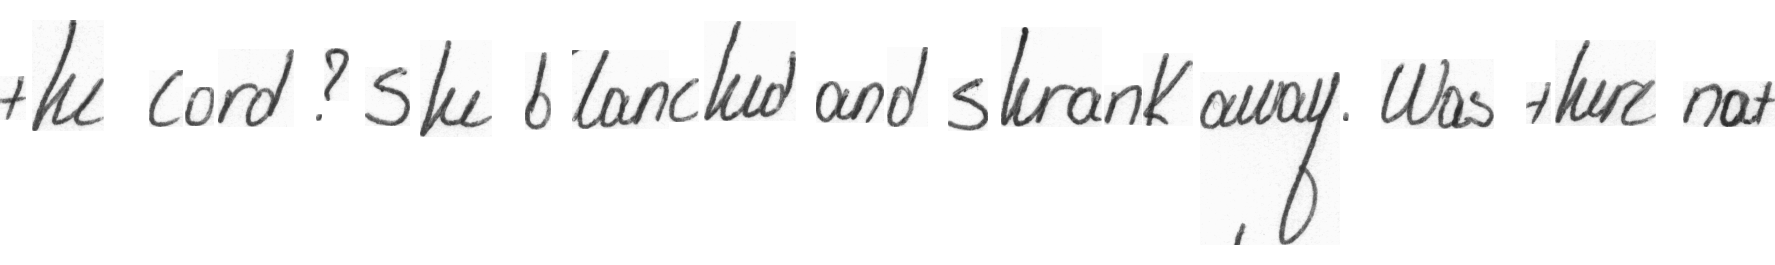 the cord? She blanched and shrank away. Was there not